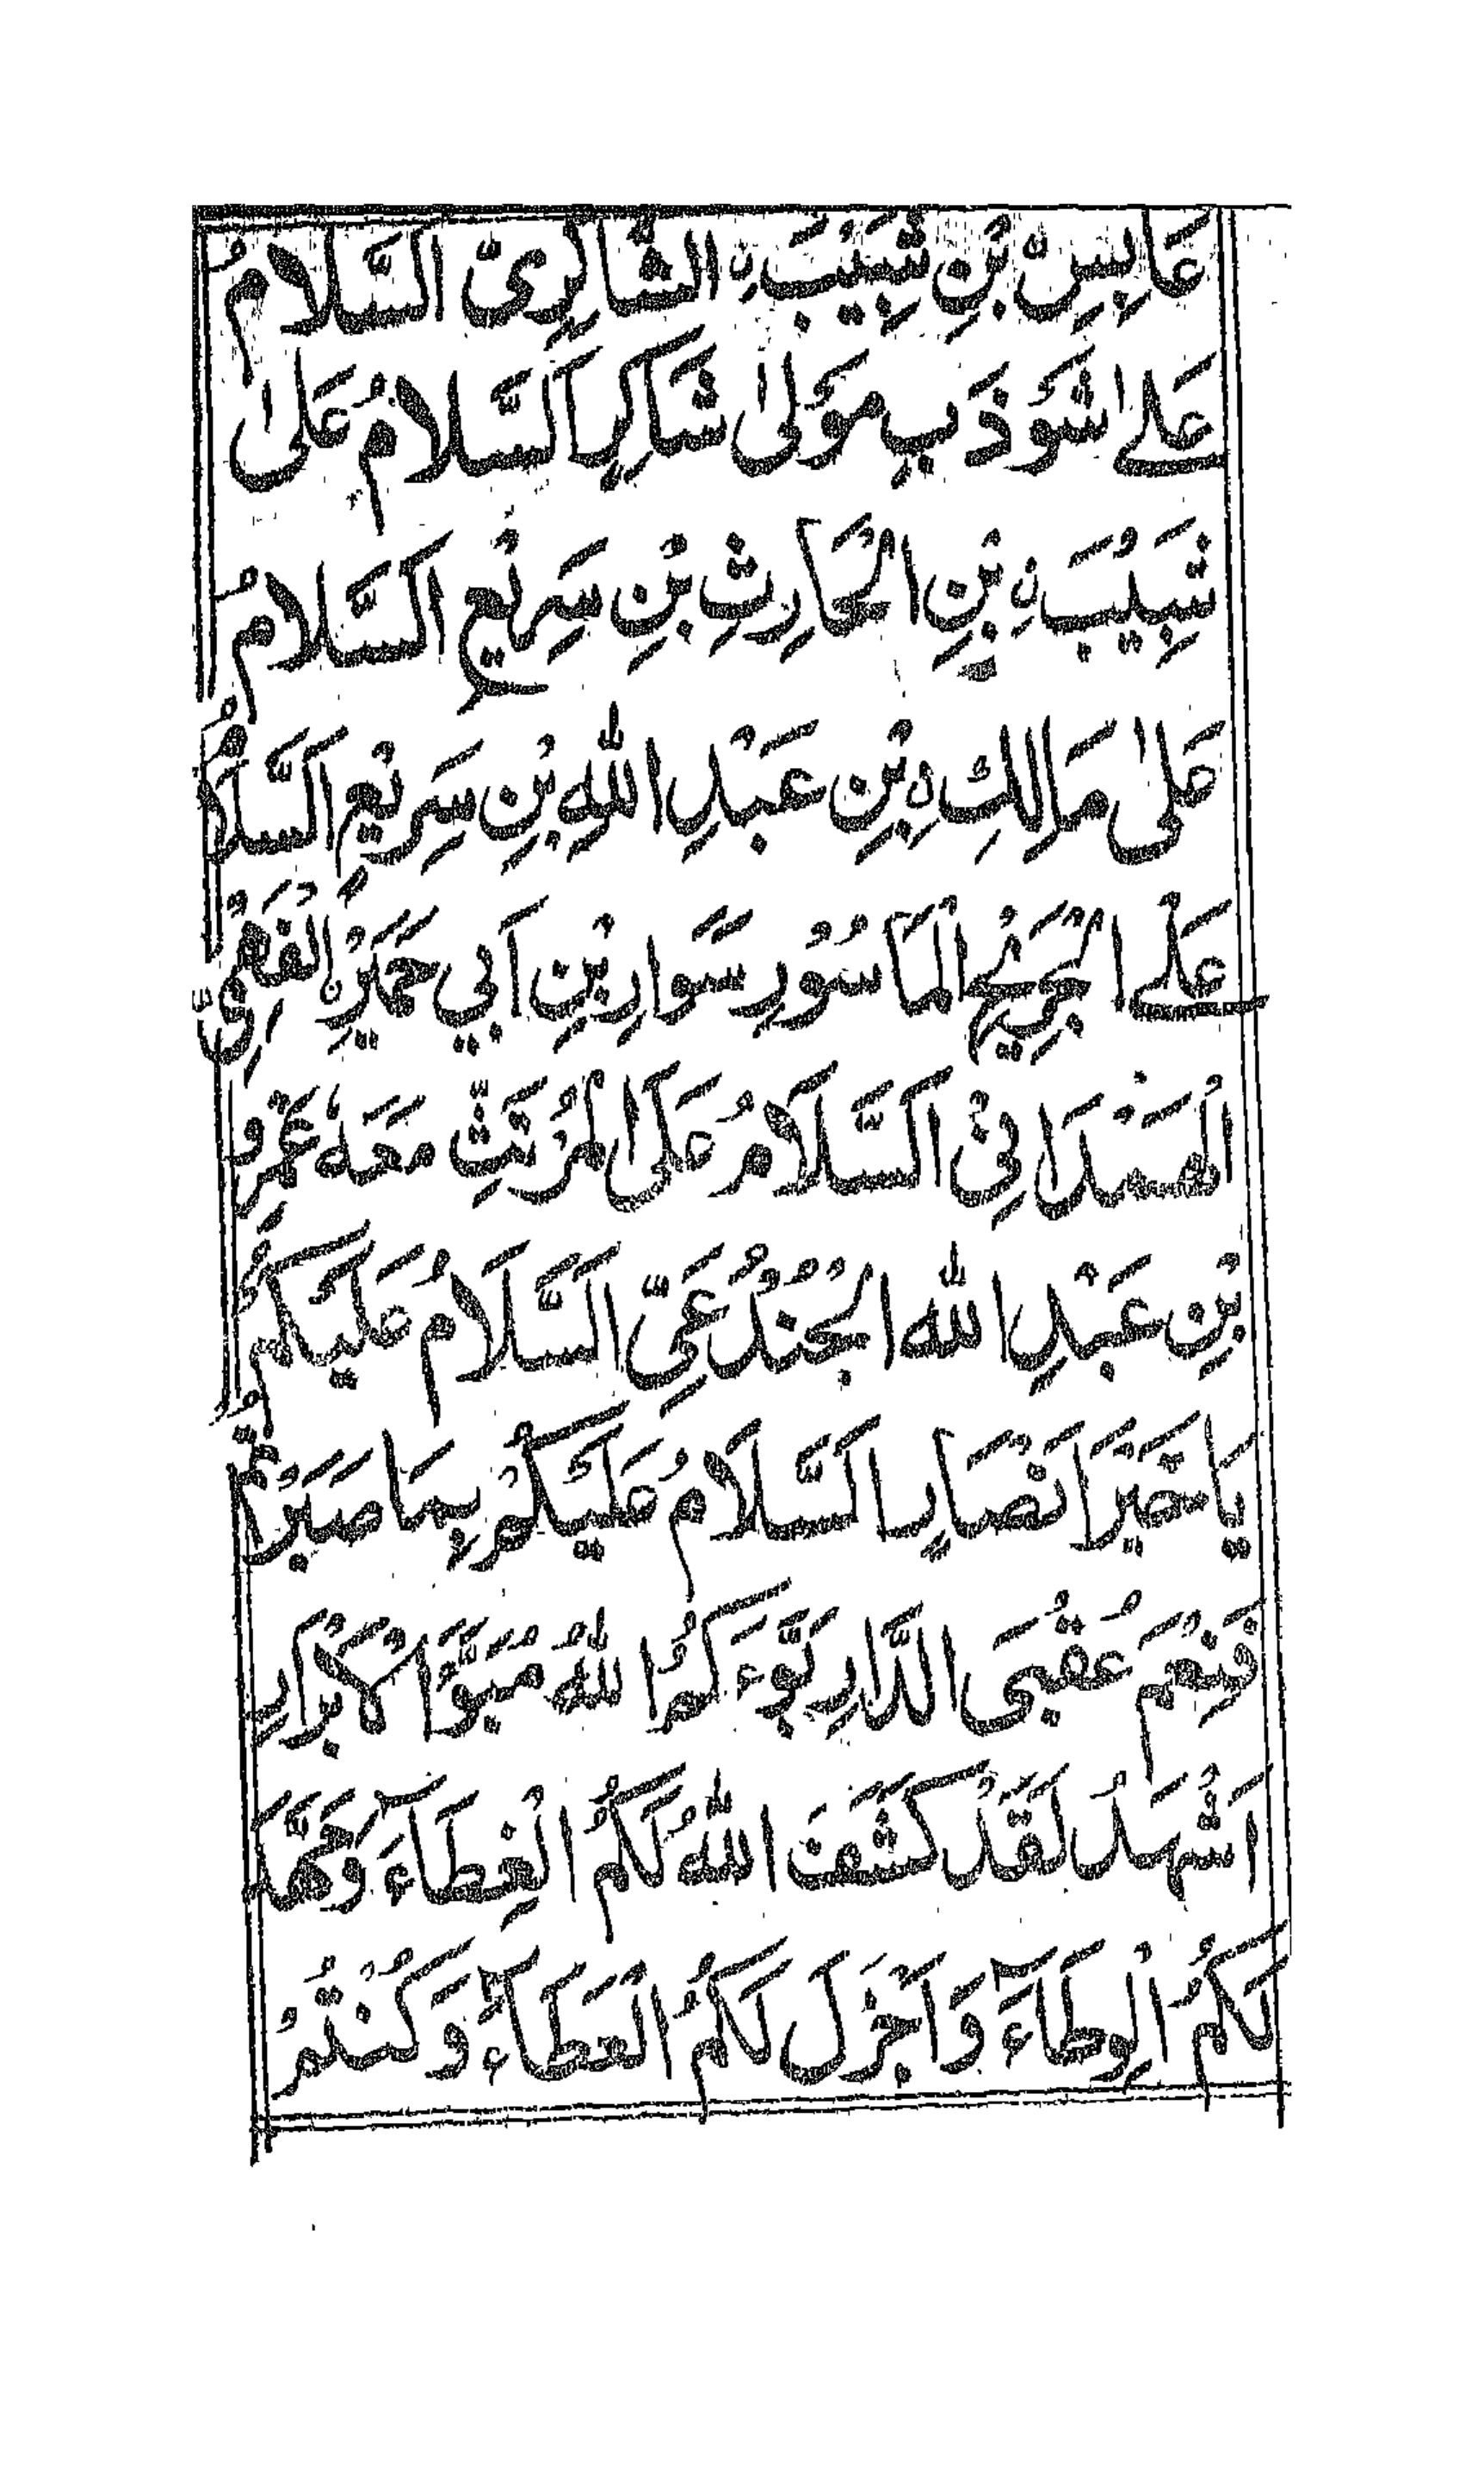 عَابِسِ بْنِ شَبِيْبَ ۨ الشَّاكِرِىِّ اَلسَّلَامُ
عَلٰے شَوْذَبٍ مَوْلٰى شَاكِرٍ اَلسَّلَامُ عَلٰى
شَبِيْبَ ۨ بْنِ الْحَارِثِ بْنِ سَرِيْعٍ اَلسَّلَامُ
عَلٰى مَالِكِ ۨ بْنِ عَبْدِ اللّٰهِ بْنِ سَرِيْعٍ اَلسَّلَامُ
عَلَے الْجَرِيْحِ الْمَاْسُوْرِ سَوَّارِ بْنِ اَبِي حَمَيْرِ ۨ الْفَهْمِىِّ
الْهَمْدَانِيْ اَلسَّلَامُ عَلَى الْمُرَتَّثِ مَعَهٗ عَمْرِو
بْنِ عَبْدِ اللّٰهِ الْجُنْدُعِىِّ اَلسَّلَامُ عَلَيْكُمْ
يَا خَيْرَ اَنْصَارٍ اَلسَّلَامُ عَلَيْكُمْ بِمَا صَبَرْتُمْ
فَنِعْمَ عُقْبَى الدَّارِ بَوَّءَكُمُ اللّٰهُ مُبَوَّأَ الْاَبْرَارِ
اَشْهَدُ لَقَدْ كَشَفَ اللّٰهُ لَكُمُ الْغِطَآءَ وَمَهَّدَ
لَكُمُ الْوِطَآءَ وَاَجْزَلَ لَكُمُ الْعَطَآءَ وَكُنْتُمْ